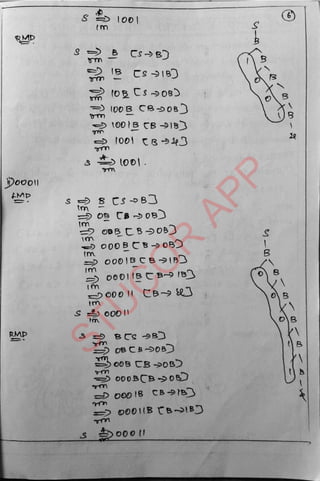 S *⇒ lm 1001
6
RMD
S ⇒ rm B [S→B]
⇒ rm 1B [S→1B]
⇒ rm 10B [S→0B]
⇒ rm 100B [B→0B]
⇒ rm 1001B [B→1B]
⇒ rm 1001 [B→ε]
S *⇒ rm 1001.
S
B
1 B
0 B
0 B
1 B
ε
00011
LMD
S ⇒ lm B [S→B]
⇒ lm 0B [B→0B]
⇒ lm 00B [B→0B]
⇒ lm 000B [B→0B]
⇒ lm 0001B [B→1B]
⇒ lm 00011B [B→1B]
⇒ lm 00011 [B→ε]
S *⇒ lm 00011
S
B
0 B
0 B
0 B
1 B
1 B
ε
RMD
S ⇒ rm B [S→B]
⇒ rm 0B [B→0B]
⇒ rm 00B [B→0B]
⇒ rm 000B [B→0B]
⇒ rm 0001B [B→1B]
⇒ rm 00011B [B→1B]
S *⇒ rm 00011
STUCOR APP